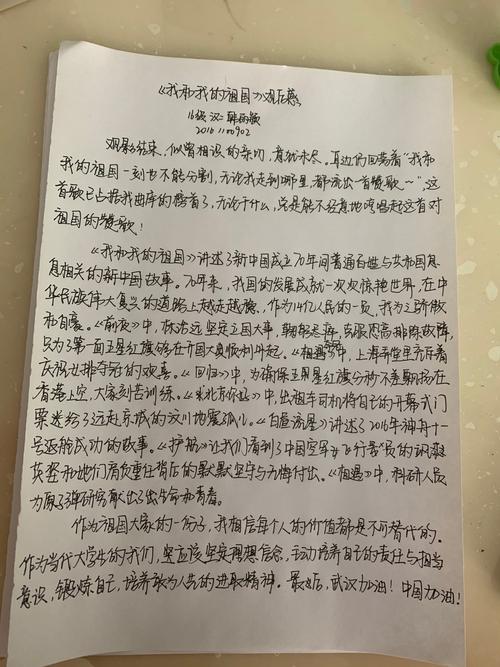 《我和我的祖国》观后感
16级 汉二 韩丽敏
20161100902
观影结束,似曾相识的亲切,意犹未尽。耳边仍回荡着“我和
我的祖国一刻也不能分割,无论我走到哪里,都流出一首赞歌~”,这
首歌已占据我曲库的榜首了,无论干什么,总是能不经意地哼唱起这首对
祖国的赞歌!
《我和我的祖国》讲述了新中国成立70年间普通百姓与共和国息
息相关的新中国故事。70年来,我国的发展成就一次次惊艳世界,在中
华民族伟大复兴的道路上越走越稳,作为14亿人民的一员,我为之骄傲
和自豪。《前夜》中,林治远坚定立国大事,克服困高排除故障,
只为了第一面五星红旗够在开国大典顺利升起。《相遇》中,上海弄堂里充斥着
庆祝女排夺冠的欢喜。《回归》中,为确保五星红旗分秒不差飘扬在
香港上空,大家刻苦训练。《北京你好》中,出租车司机将自己的开幕式门
票送给了远赴京城的汶川地震孤儿。《白昼流星》讲述了2016年神舟十一
号返航成功的故事。《护航》让我们看到了中国空军女飞行员的飒爽
英姿和她们肩负重任背后的默默坚守与无悔付出。《相遇》中,科研人员
为原子弹研究献出了出生命和青春。
作为祖国大家的一份子,我相信每个人的价值都是不可替代的。
作为当代大学生的我们,更应该坚定理想信念,主动培养自己的责任与担当
意识,锻炼自己,培养敢为人先的进取精神。最后,武汉加油!中国加油!